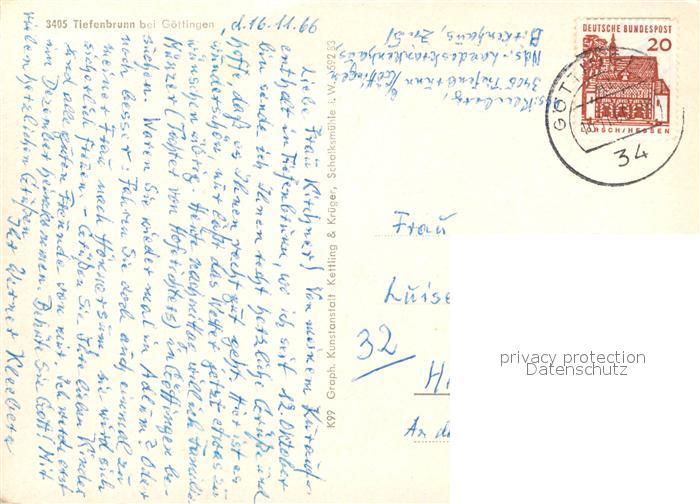 3405 Tiefenbrunn bei Göttingen
d. 16.11.66
Liebe Frau Kirchner! Von meinem Kurauf-
enthalt in Tiefenbrunn, wo ich seit 12. Oktober
bin sende ich Ihnen recht herzliche Grüße und
hoffe, daß es Ihnen recht gut geht. Hier ist es
wunderschön, nur läßt das Wetter jetzt etwas zu
wünschen übrig. Heute nachmittag will ich Familie
Münzer (Tochter von Hofrichters) in Göttingen be-
suchen. Waren Sie wieder mal in Adlum? Oder
noch besser: Fahren Sie doch auch einmal zu
meiner Frau nach Hönnersum, sie wird sich
sicherlich freuen. - Grüßen Sie Ihre lieben Kinder
und alle guten Freunde von mir. Ich werde erst
im Dezember heimkommen. Behüte Sie Gott! Mit
vielen herzlichen Grüßen
Ihr Werner
K99 Graph. Kunstanstalt Kettling & Krüger, Schalksmühle i. W. 0592 83
3405 Tiefenbrunn
Nds. Landeskrankenhaus,
Birkenhaus,
DEUTSCHE BUNDESPOST
20
LORSCH/HESSEN
GÖTTINGEN
34
Frau
Luise
32
H
An de
privacy protection
Datenschutz